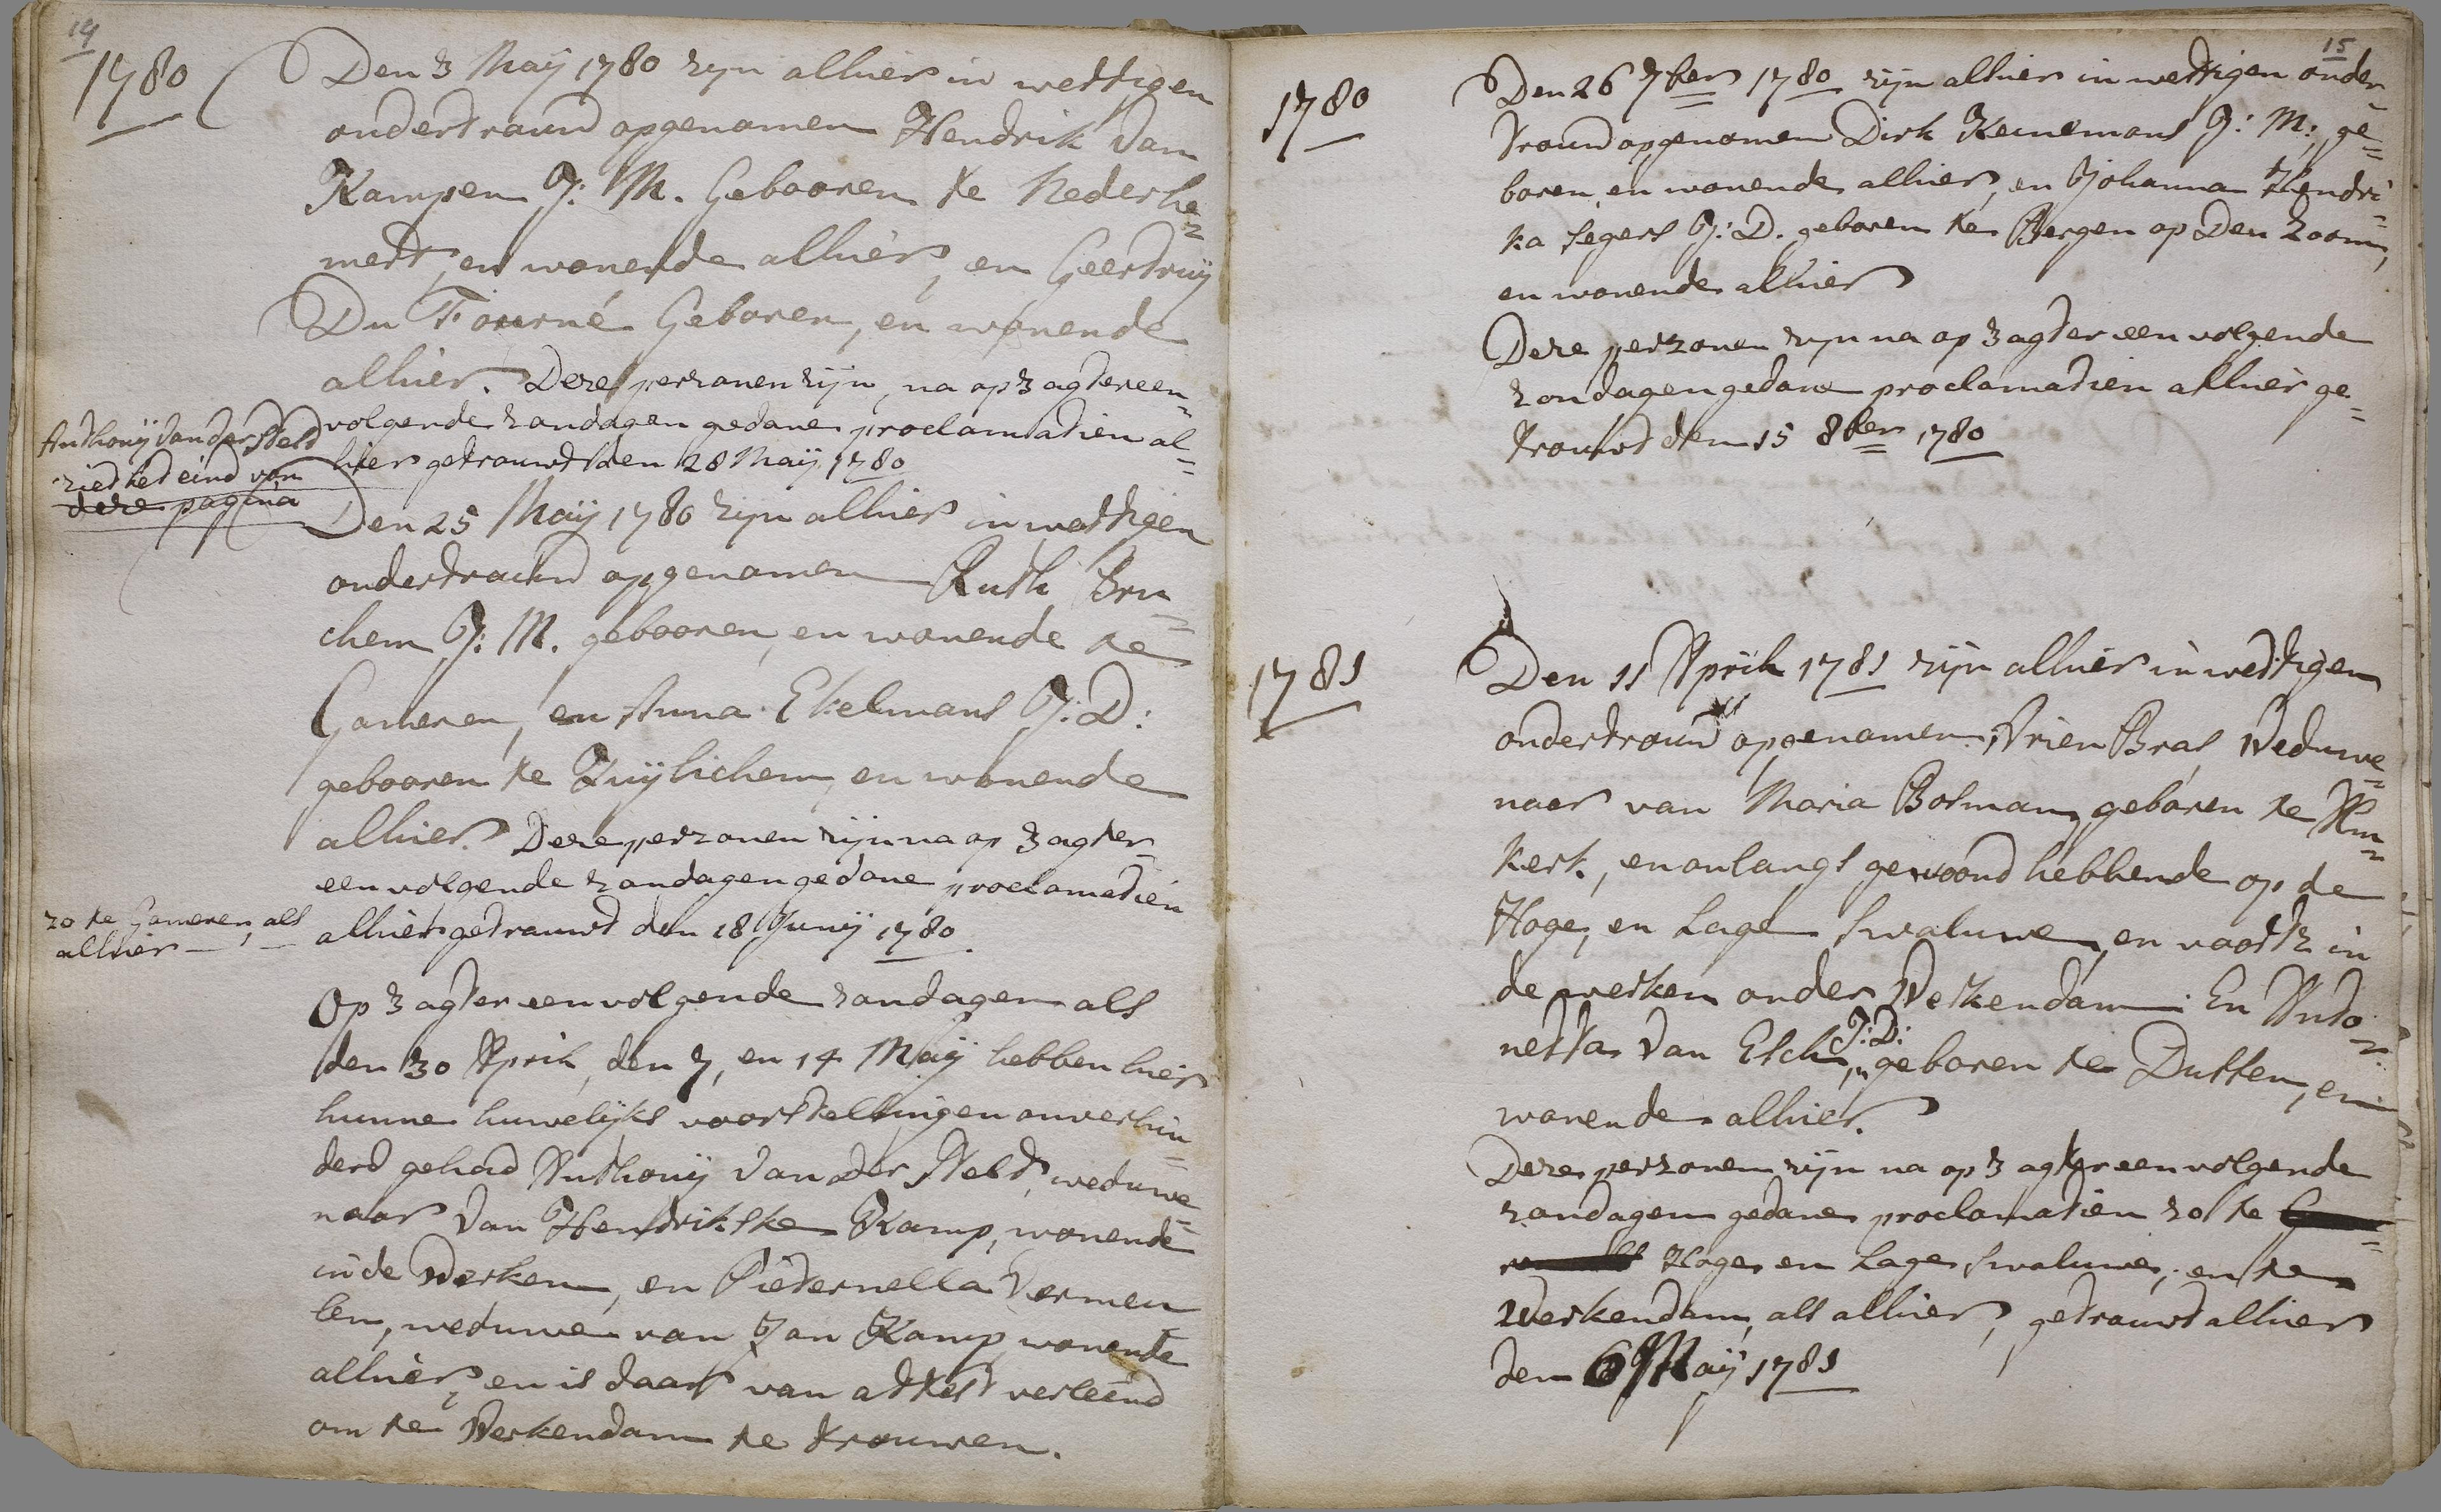 14
1780
Den 3 Maÿ 1780 zyn alhier in wettigen
ondertrouw opgenomen Hendrik van
Kampen J: M. Gebooren te Nederhe=
mert, en wonende alhier, en Geertruÿ
Du Fourné Geboren, en wonende
alhier. Deze perzonen zijn, na op 3 agtereen=
volgende zondagen gedane proclamatien al=
hier getrouwt den 28 Maÿ 1780
Anthonÿ van der Stelt
ziet het eind van
deze pagina
Den 25 Maÿ 1780 zijn alhier in wettigen
ondertrouw opgenomen Ruth Bru=
chem J: M. gebooren, en wonende te
Gameren, en Anna Ekelmans J: D:
gebooren te Zuÿlichem, en wonende
alhier. Deze perzonen zijn na op 3 agter
een volgende zondagen gedane proclamatien
zo te Gameren, als
alhier
alhier getrouwt den 18 Junÿ 1780
Op 3 agter een volgende zondagen als
den 30 April, den 7, en 14 Maÿ hebben hier
hunne huwelijks voorstellingen onverhin=
derd gehad Anthonÿ van der Stelt, weduwe=
naar van Hendrikske Kamp, wonende
in de Werken, en Pieternella Vermeu=
len, weduwe van Jan Kamp, wonende
alhier, en is daar van attest verleend
om te Werkendam te trouwen.
15
1780
Den 26 7ber 1780 zijn alhier in wettigen onder=
trouw opgenomen Dirk Keinemans J: M:, ge=
boren, en wonende alhier, en Johanna Hendri=
ka Segers J: D. geboren te Bergen op Den Zoom,
en wonende alhier
Deze perzonen zyn na op 3 agter een volgende
zondagen gedane proclamatien alhier ge=
trouwt den 15 8ber 1780
1781
Den 11 April 1781 zijn alhier in wettigen
ondertrouw opgenomen Arien Bras, Weduwe=
naar van Maria Botman, geboren te Alm=
kerk, en onlangs gewoond hebbende op de
Hoge, en Lage Swaluwe, en voortz in
de werken onder Werkendam. En Anto=
netta van Esch, J: D: geboren te Dussen, en
wonende alhier.
Deze perzonen zijn na op 3 agter een volgende
zondagen gedane proclamatien zo te
Hoge en Lage Swaluwe, en te
Werkendam, als alhier, getrouwt alhier
den 6 Maÿ 1781